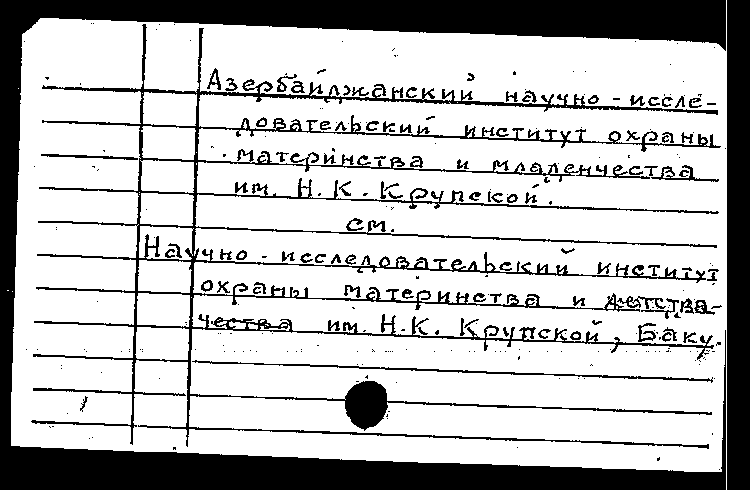 Азербайджанский научно-иссле-
довательский институт охраны
материнства и младенчества
им. Н.К. Крупской.
см.
Научно-исследовательский институт
охраны материнства и детства-
чества им. Н.К. Крупской, Баку.